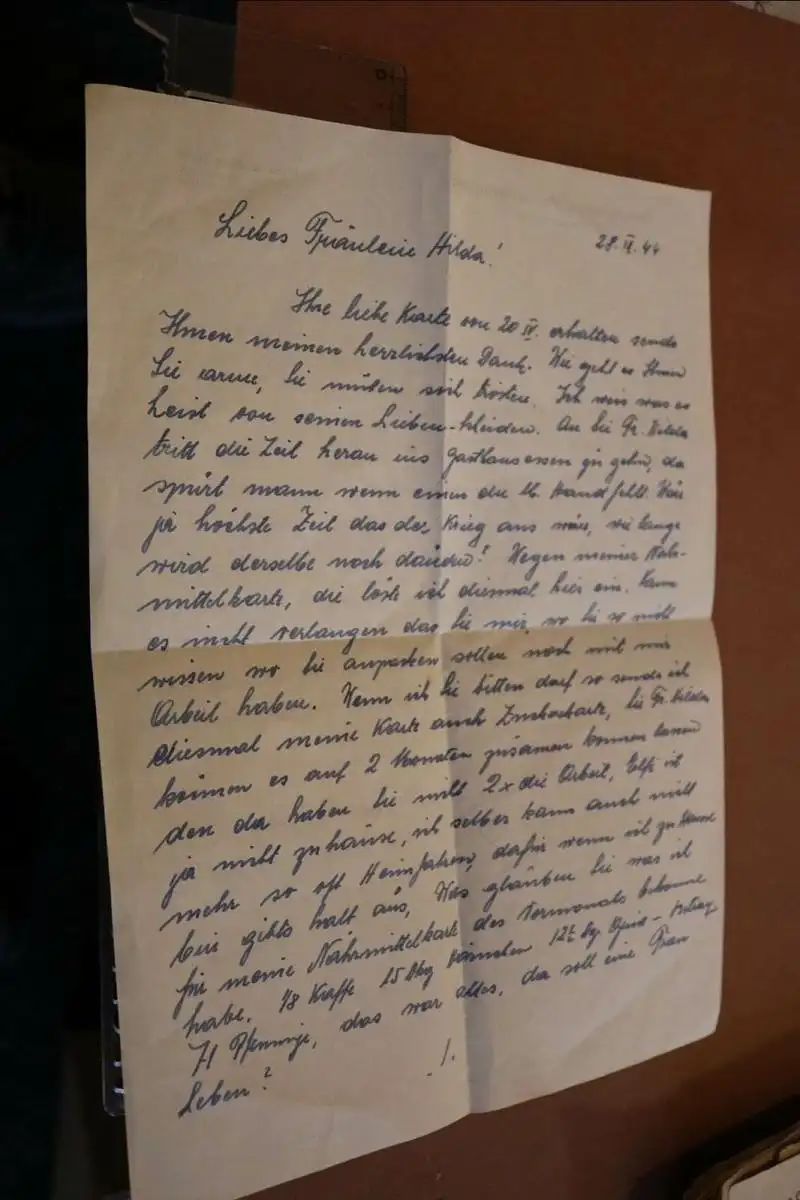 Liebes Fräulein Hilda!
28. IV. 44
Ihre liebe Karte von 20 IV. erhalten sende
Ihnen meinen herzlichsten Dank. Wie geht es Ihnen
Sie arme, Sie müßen sich trösten. Ich weis was es
heist von seinen Lieben. An Sie Fr. Hilda
tritt die Zeit heran ins Gasthausessen zu gehn, da
spürt mann wenn einen die lb. Hand fehlt. Wär
ja höchste Zeit das der Krieg aus wär, wie lange
wird derselbe noch dauern? Wegen meiner Nähr-
mittelkarte, die löste ich diesmal hier ein. Kann
es nicht verlangen das Sie mir, wo Sie so nicht
wissen wo Sie anpacken sollen noch mit mir
Arbeit haben. Wenn ich Sie bitten darf so sende ich
diesmal meine Karte auch, Sie Fr. Hilda
können es auf 2 Monaten zusamen kommen lassen
den da haben Sie nicht 2x die Arbeit, ist
ja nicht zuhause, ich selber kann auch nicht
mehr so oft Heimfahren, dafür wenn ich zu Hause
bin gibts halt aus. Was glauben Sie was ich
für meine Nährmittelkarte des Vormonats bekomme
habe. 1/8 Kaffe 15 Dkg
71 Pfennige, das war alles, da soll eine Frau
Leben?
./.